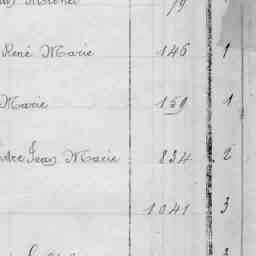 Michel 79
René Marie 146 1
Marie 159 1
Jean Marie 834 2
1041 3